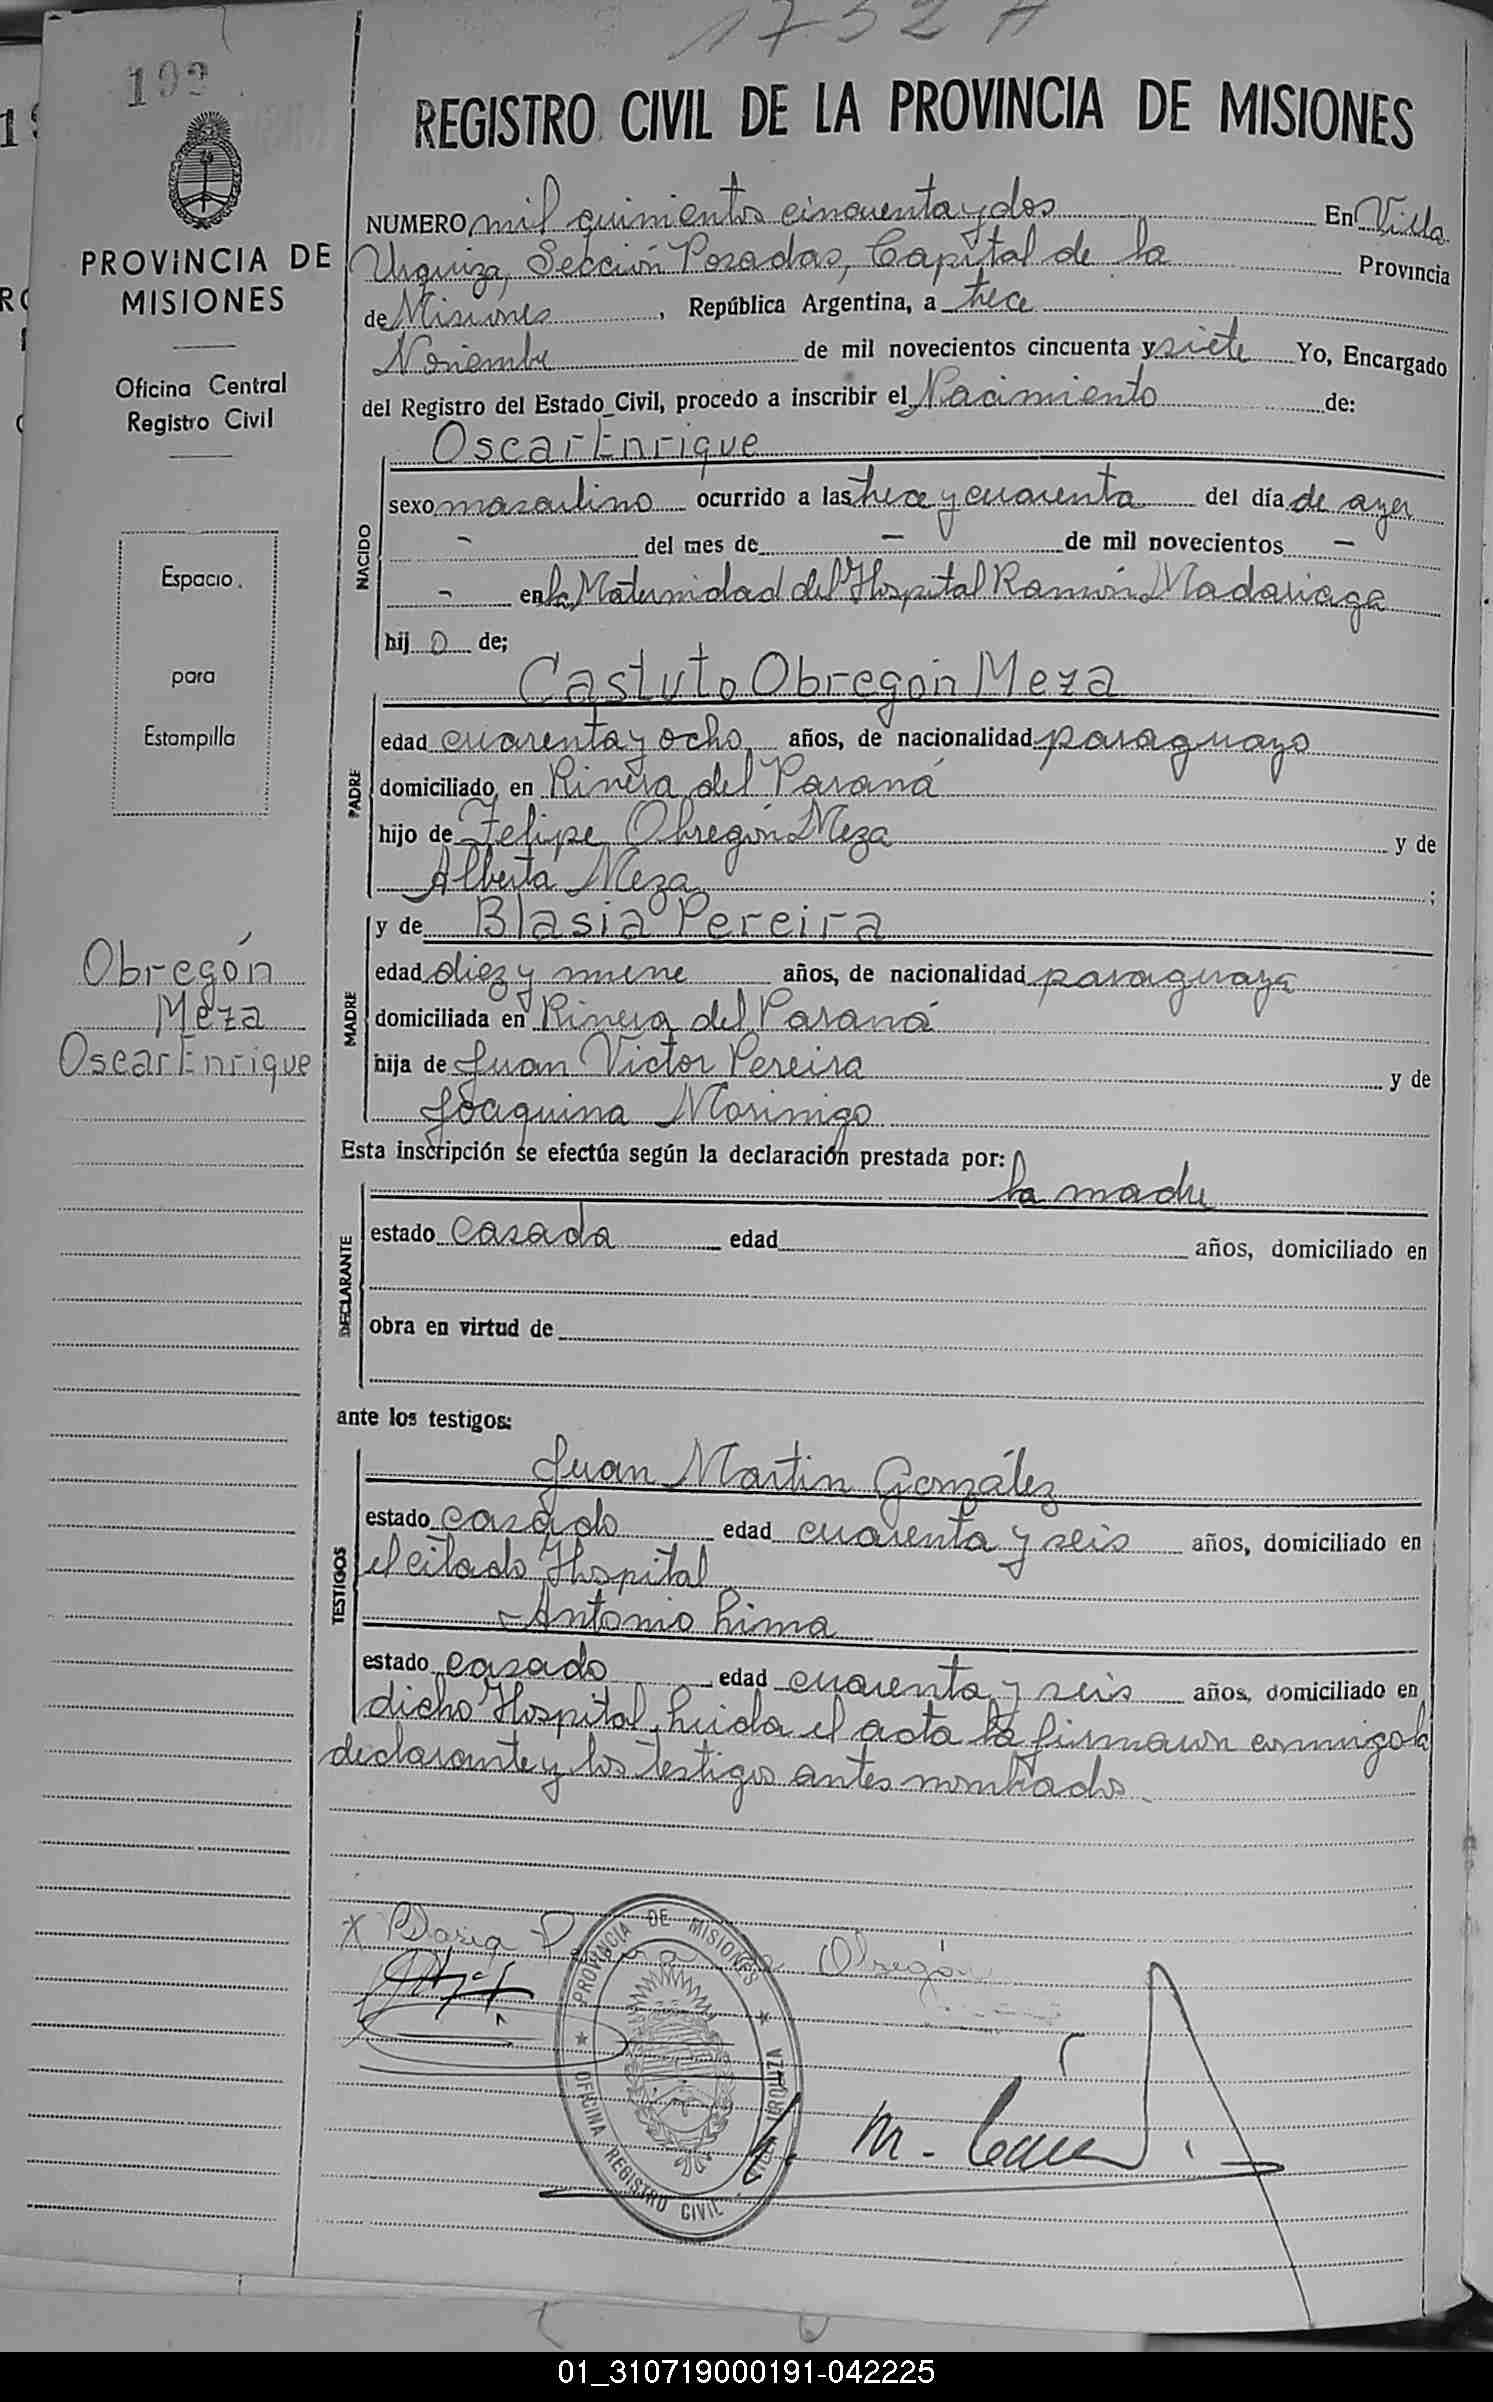 192
PROVINCIA DE
MISIONES
Oficina Central
Registro Civil
Espacio
para
Estampilla
Obregón
Meza
Oscar Enrique
1732 A
REGISTRO CIVIL DE LA PROVINCIA DE MISIONES
NUMERO mil quinientos cincuenta y dos En Villa
Urquiza, Sección Posadas, Capital de la Provincia
de Misiones, República Argentina, a trece
Noviembre de mil novecientos cincuenta y siete Yo, Encargado
del Registro del Estado Civil, procedo a inscribir el Nacimiento de:
Oscar Enrique
NACIDO
sexo masculino ocurrido a las trece y cuarenta del día de ayer
- del mes de - de mil novecientos -
- en la Maternidad del Hospital Ramón Madariaga
hij o de;
Castuto Obregón Meza
PADRE
edad cuarenta y ocho años, de nacionalidad paraguayo
domiciliado en Rivera del Paraná
hijo de Felipe Obregón Meza y de
Alberta Meza ;
y de Blasia Pereira
MADRE
edad diez y nueve años, de nacionalidad paraguaya
domiciliada en Rivera del Paraná
hija de Juan Victor Pereira y de
Joaquina Morinigo
Esta inscripción se efectúa según la declaración prestada por:
la madre
DECLARANTE
estado casada edad años, domiciliado en
obra en virtud de
ante los testigos:
Juan Martin González
TESTIGOS
estado casado edad cuarenta y seis años, domiciliado en
el citado Hospital
Antonio Lima
estado casado edad cuarenta y seis años, domiciliado en
dicho Hospital, Leida el acta la firmaron conmigo la
declarante y los testigos antes nombrados
x Blasia Pereira de Obregón
PROVINCIA DE MISIONES
OFICINA REGISTRO CIVIL
VILLA URQUIZA
01_310719000191-042225